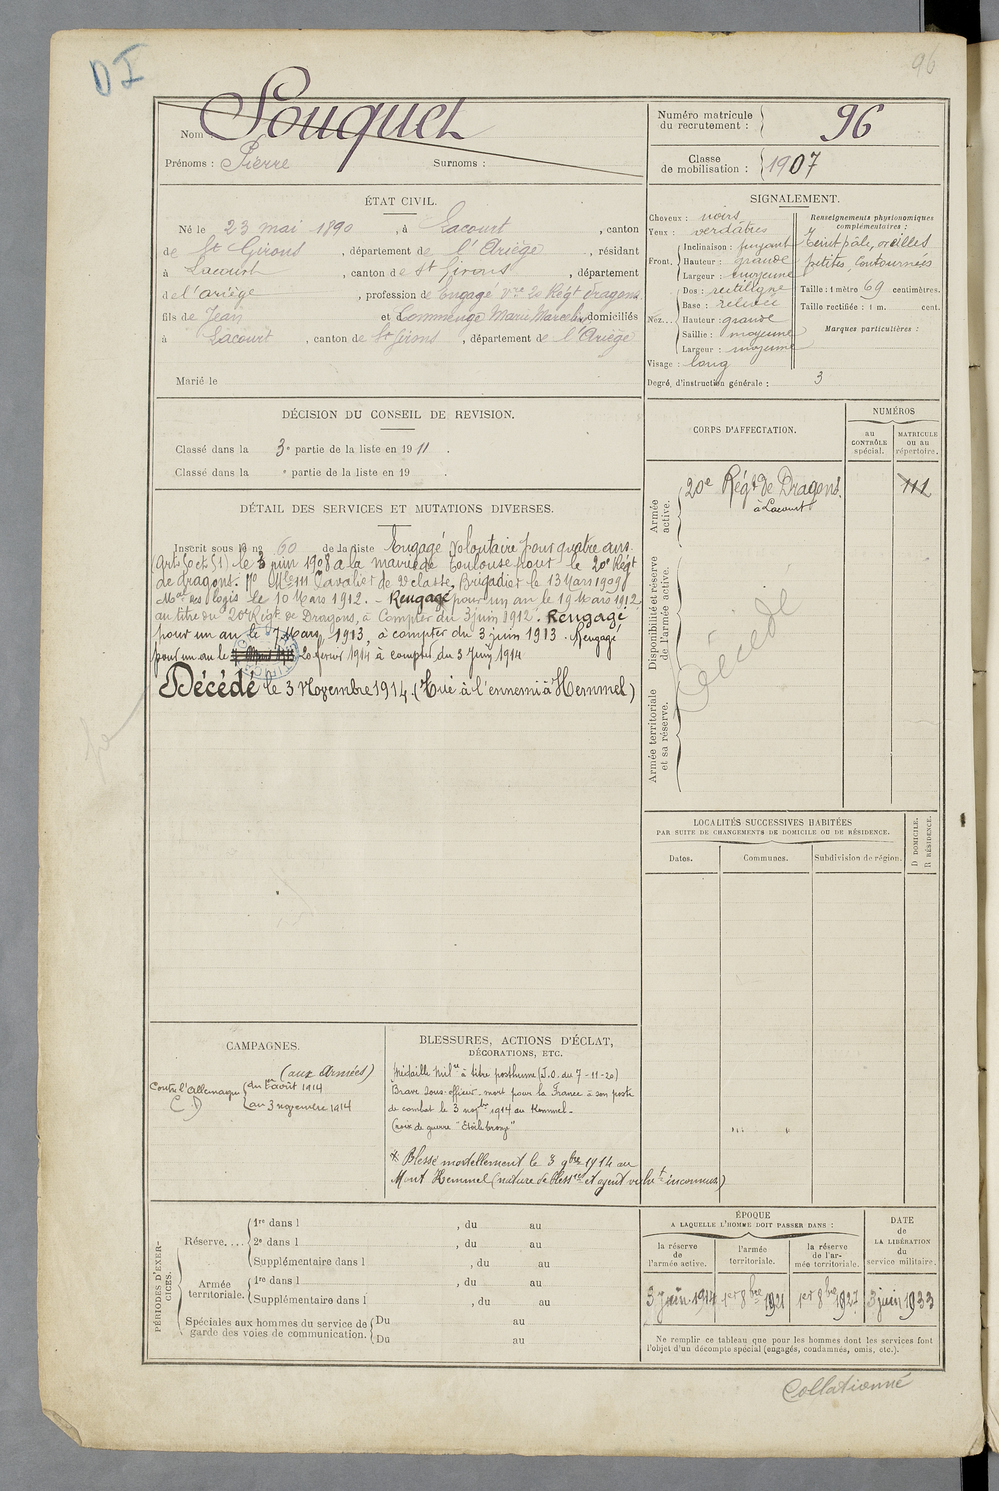 D I
96
Nom : Souquet
Prénoms : Pierre Surnoms :
Numéro matricule du recrutement : 96
Classe de mobilisation : 1907
ÉTAT CIVIL.
Né le 23 mai 1890, à Lacourt, canton
de St Girons, département de l'Ariège, résidant
à Lacourt, canton de St Girons, département
de l'ariège, profession de Engagé vre 20 Régt dragons
fils de Jean et de Commenge Marie Marcelin domiciliés
à Lacourt, canton de St Girons, département de l'Ariège
Marié le
SIGNALEMENT.
Cheveux : noirs
Yeux : verdâtres
Front. Inclinaison : fuyant
Hauteur : grande
Largeur : moyenne
Nez... Dos : rectiligne
Base : relevée
Hauteur : grande
Saillie : moyenne
Largeur : moyenne
Visage : long
Renseignements physionomiques complémentaires :
Teint pâle, oreilles
petites, contournées
Taille : 1 mètre 69 centimètres.
Taille rectifiée : 1 m. cent.
Marques particulières :
Degré d'instruction générale : 3
DÉCISION DU CONSEIL DE REVISION.
Classé dans la 3e partie de la liste en 1911.
Classé dans la e partie de la liste en 19 .
DÉTAIL DES SERVICES ET MUTATIONS DIVERSES.
Inscrit sous le no 60 de la liste Engagé Volontaire pour quatre ans
(arts 50 et 51) le 3 juin 1908 a la mairie de Toulouse pour le 20e Régt
de dragons. No Mle 111 Cavalier de 2e classe, Brigadier le 13 Mars 1909
Mal des logis le 10 Mars 1912. - Rengagé pour un an le 19 Mars 1912
au titre du 20e Régt de Dragons, à Compter du 3 juin 1912. Rengagé
pour un an le 7 Mars 1913, à compter du 3 juin 1913. Rengagé
pour un an le 20 février 1914 à compter du 3 Juin 1914
Décédé le 3 Novembre 1914 (Tué à l'ennemi à Hemmel)
CORPS D'AFFECTATION.
NUMÉROS
au CONTRÔLE spécial.
MATRICULE ou au répertoire.
Armée active.
20e Régt de Dragons 111
à Lacourt
Disponibilité et réserve de l'armée active.
Décédé
Armée territoriale et sa réserve.
LOCALITÉS SUCCESSIVES HABITÉES
PAR SUITE DE CHANGEMENTS DE DOMICILE OU DE RÉSIDENCE.
Dates. Communes. Subdivision de région.
D DOMICILE.
R RÉSIDENCE.
CAMPAGNES.
(aux Armées)
Contre l'Allemagne du 1er août 1914
(C D) au 3 novembre 1914
BLESSURES, ACTIONS D'ÉCLAT,
DÉCORATIONS, ETC.
Médaille Milre à titre posthume (J.O. du 7-11-20)
Brave sous-officier - mort pour la France à son poste
de combat le 3 novbre 1914 au Kemmel -
Croix de guerre "Etoile bronze"
* Blessé mortellement le 3 9bre 1914 au
Mont Kemmel (nature de blessre et agent vulnt inconnus)
PÉRIODES D'EXERCICES.
Réserve.... 1re dans l , du au
2e dans l , du au
Supplémentaire dans l , du au
Armée territoriale. 1re dans l , du au
Supplémentaire dans l , du au
Spéciales aux hommes du service de garde des voies de communication. Du au
Du au
ÉPOQUE
A LAQUELLE L'HOMME DOIT PASSER DANS :
la réserve de l'armée active.
l'armée territoriale.
la réserve de l'armée territoriale.
DATE de LA LIBÉRATION du service militaire.
3 juin 1914 1er 8bre 1921 1er 8bre 1927 3 juin 1933
Ne remplir ce tableau que pour les hommes dont les services font
l'objet d'un décompte spécial (engagés, condamnés, omis, etc.).
Collationné